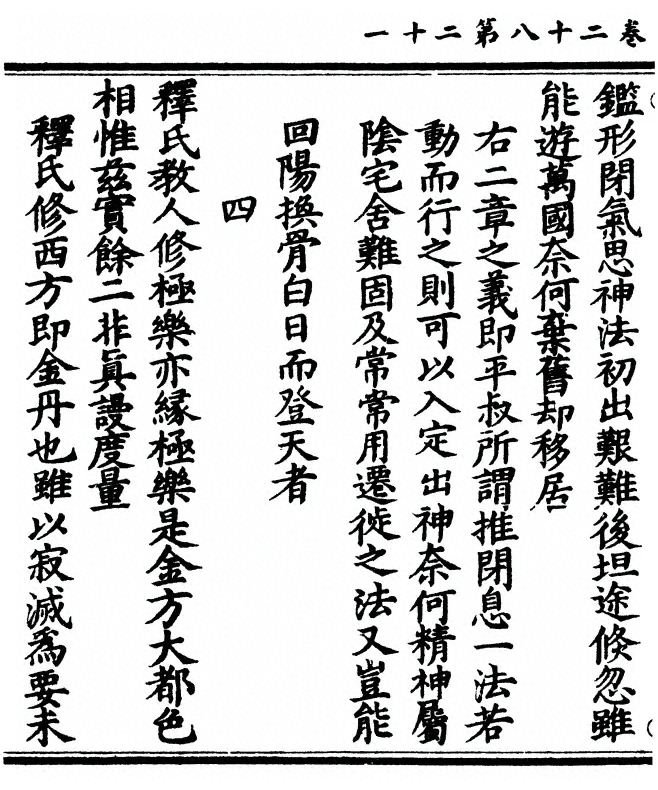 卷二十八第二十一
鑑形閉氣思神法初出艱難後坦途倏忽雖
能遊萬國奈何棄舊却移居
右二章之義即平叔所謂推閉息一法若
動而行之則可以入定出神奈何精神屬
陰宅舍難固及常常用遷徙之法又豈能
回陽換骨白日而登天者
四
釋氏教人修極樂亦緣極樂是金方大都色
相惟兹實餘二非眞謾度量
釋氏修西方即金丹也雖以寂滅爲要未